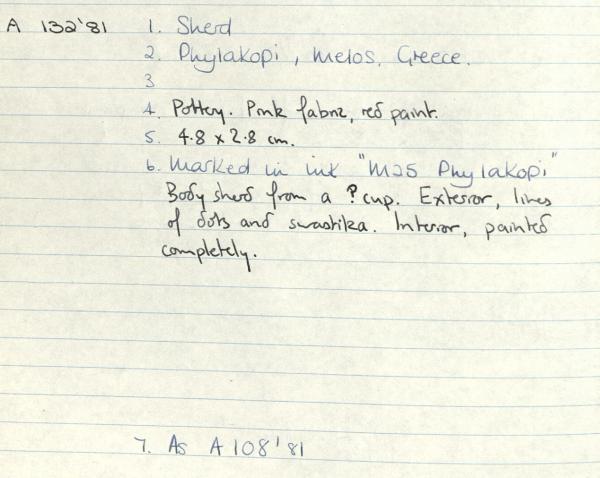 A 132'81 1. Sherd
2. Phylakopi, Melos, Greece.
3
4. Pottery. Pink fabric, red paint.
5. 4.8 x 2.8 cm.
6. Marked in ink "M25 Phylakopi"
Body sherd from a ? cup. Exterior, lines
of dots and swastika. Interior, painted
completely.
7. As A 108'81